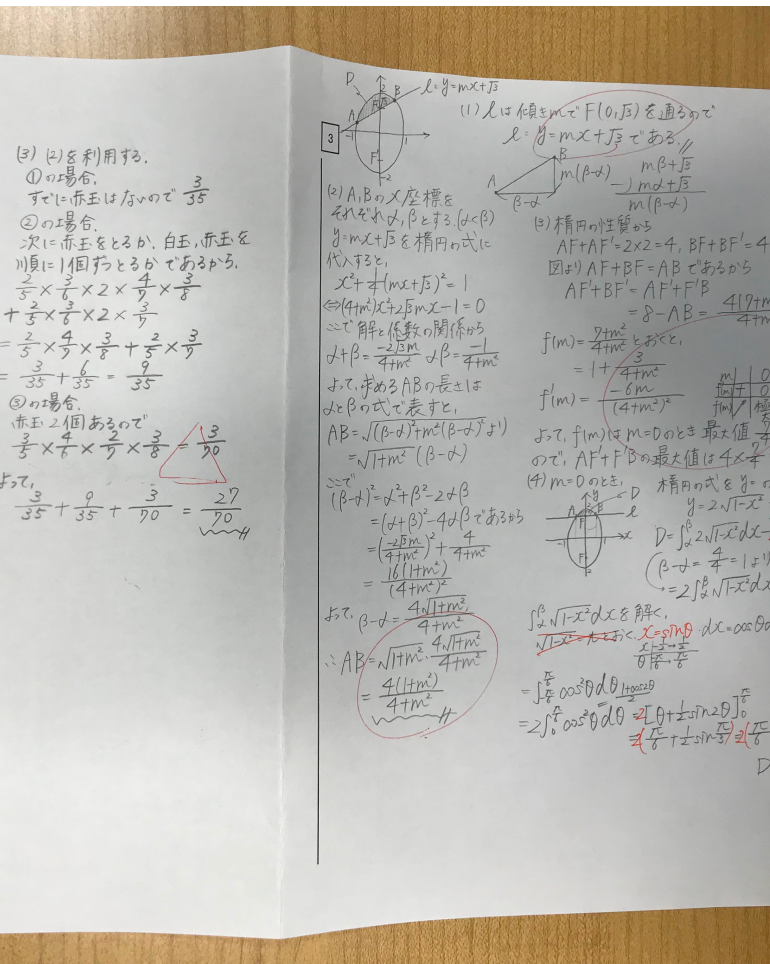 (3) (2)を利用する.
①の場合.
すでに赤玉はないので 3/35
②の場合.
次に赤玉をとるか、白玉、赤玉を
順に1個ずつとるかであるから.
2/5 × 3/6 × 2 × 4/7 × 3/8
+ 2/5 × 3/6 × 2 × 3/7
= 2/5 × 4/7 × 3/8 + 2/5 × 3/7
= 3/35 + 6/35 = 9/35
③の場合.
赤玉2個あるので
3/5 × 4/6 × 2/7 × 3/8 = 3/70
よって,
3/35 + 9/35 + 3/70 = 27/70
3
D
l: y=mx+√3
A
B
F
F'
-1
1
2
-2
(1) lは傾きmでF(0,√3)を通るので
l: y=mx+√3である.
A
B
β-α
m(β-α)
mβ+√3
-) mα+√3
m(β-α)
(2) A,BのX座標を
それぞれα,βとする.(α<β)
y=mx+√3を楕円の式に
代入すると,
x²+1/4(mx+√3)²=1
⇔(4+m²)x²+2√3mx-1=0
ここで解と係数の関係から
α+β=-2√3m/4+m² αβ=-1/4+m²
よって,求めるABの長さは
αとβの式で表すと,
AB=√(β-α)²+m²(β-α)²より
=√1+m² (β-α)
ここで
(β-α)²=α²+β²-2αβ
=(α+β)²-4αβであるから
=(-2√3m/4+m²)²+4/4+m²
=16(1+m²)/(4+m²)²
よって, β-α=4√1+m²/4+m²
∴AB=√1+m²・4√1+m²/4+m²
=4(1+m²)/4+m²
(3) 楕円の性質から
AF+AF'=2×2=4, BF+BF'=4
図よりAF+BF=ABであるから
AF'+BF'=AF'+F'B
=8-AB=4(7+m²)/4+m²
f(m)=7+m²/4+m²とおくと,
=1+3/4+m²
f'(m)=-6m/(4+m²)²
m 0
f'(m) + 0
f(m) ↗ 極
よって, f(m)はm=0のとき最大値 7/4
ので, AF'+F'Bの最大値は4×7/4
(4) m=0のとき,
y
D
B
l
F
x
-1
1
-2
楕円の式をy=の
y=2√1-x²
D=∫αβ 2√1-x²dx-
(β-α=4/4=1より
→=2∫αβ √1-x²dx
∫αβ √1-x²dxを解く,
x=sinθ・dx=cosθd
x -1/2→1/2
θ -π/6→π/6
=∫-π/6π/6 cos²θdθ 1+cos2θ/2
=2∫0π/6 cos²θdθ=2[θ+1/2sin2θ]0π/6
=2(π/6+1/2sinπ/3)=2(π/6
D